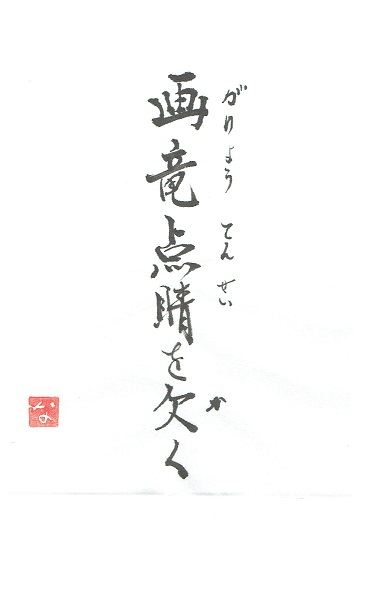 がりょう てんせい
画竜点睛を欠く
か
な